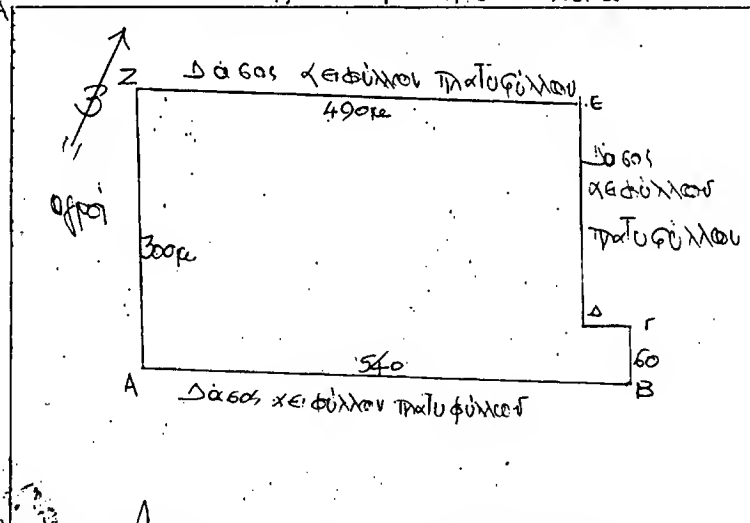 Ζ
Δάσος αειφύλλου πλατυφύλλου
Ε
490μ
Β
Δάσος
αειφύλλου
πλατυφύλλου
αγροί
300μ
Δ
Γ
540
60
Α
Β
Δάσος αειφύλλου πλατυφύλλου
Λ